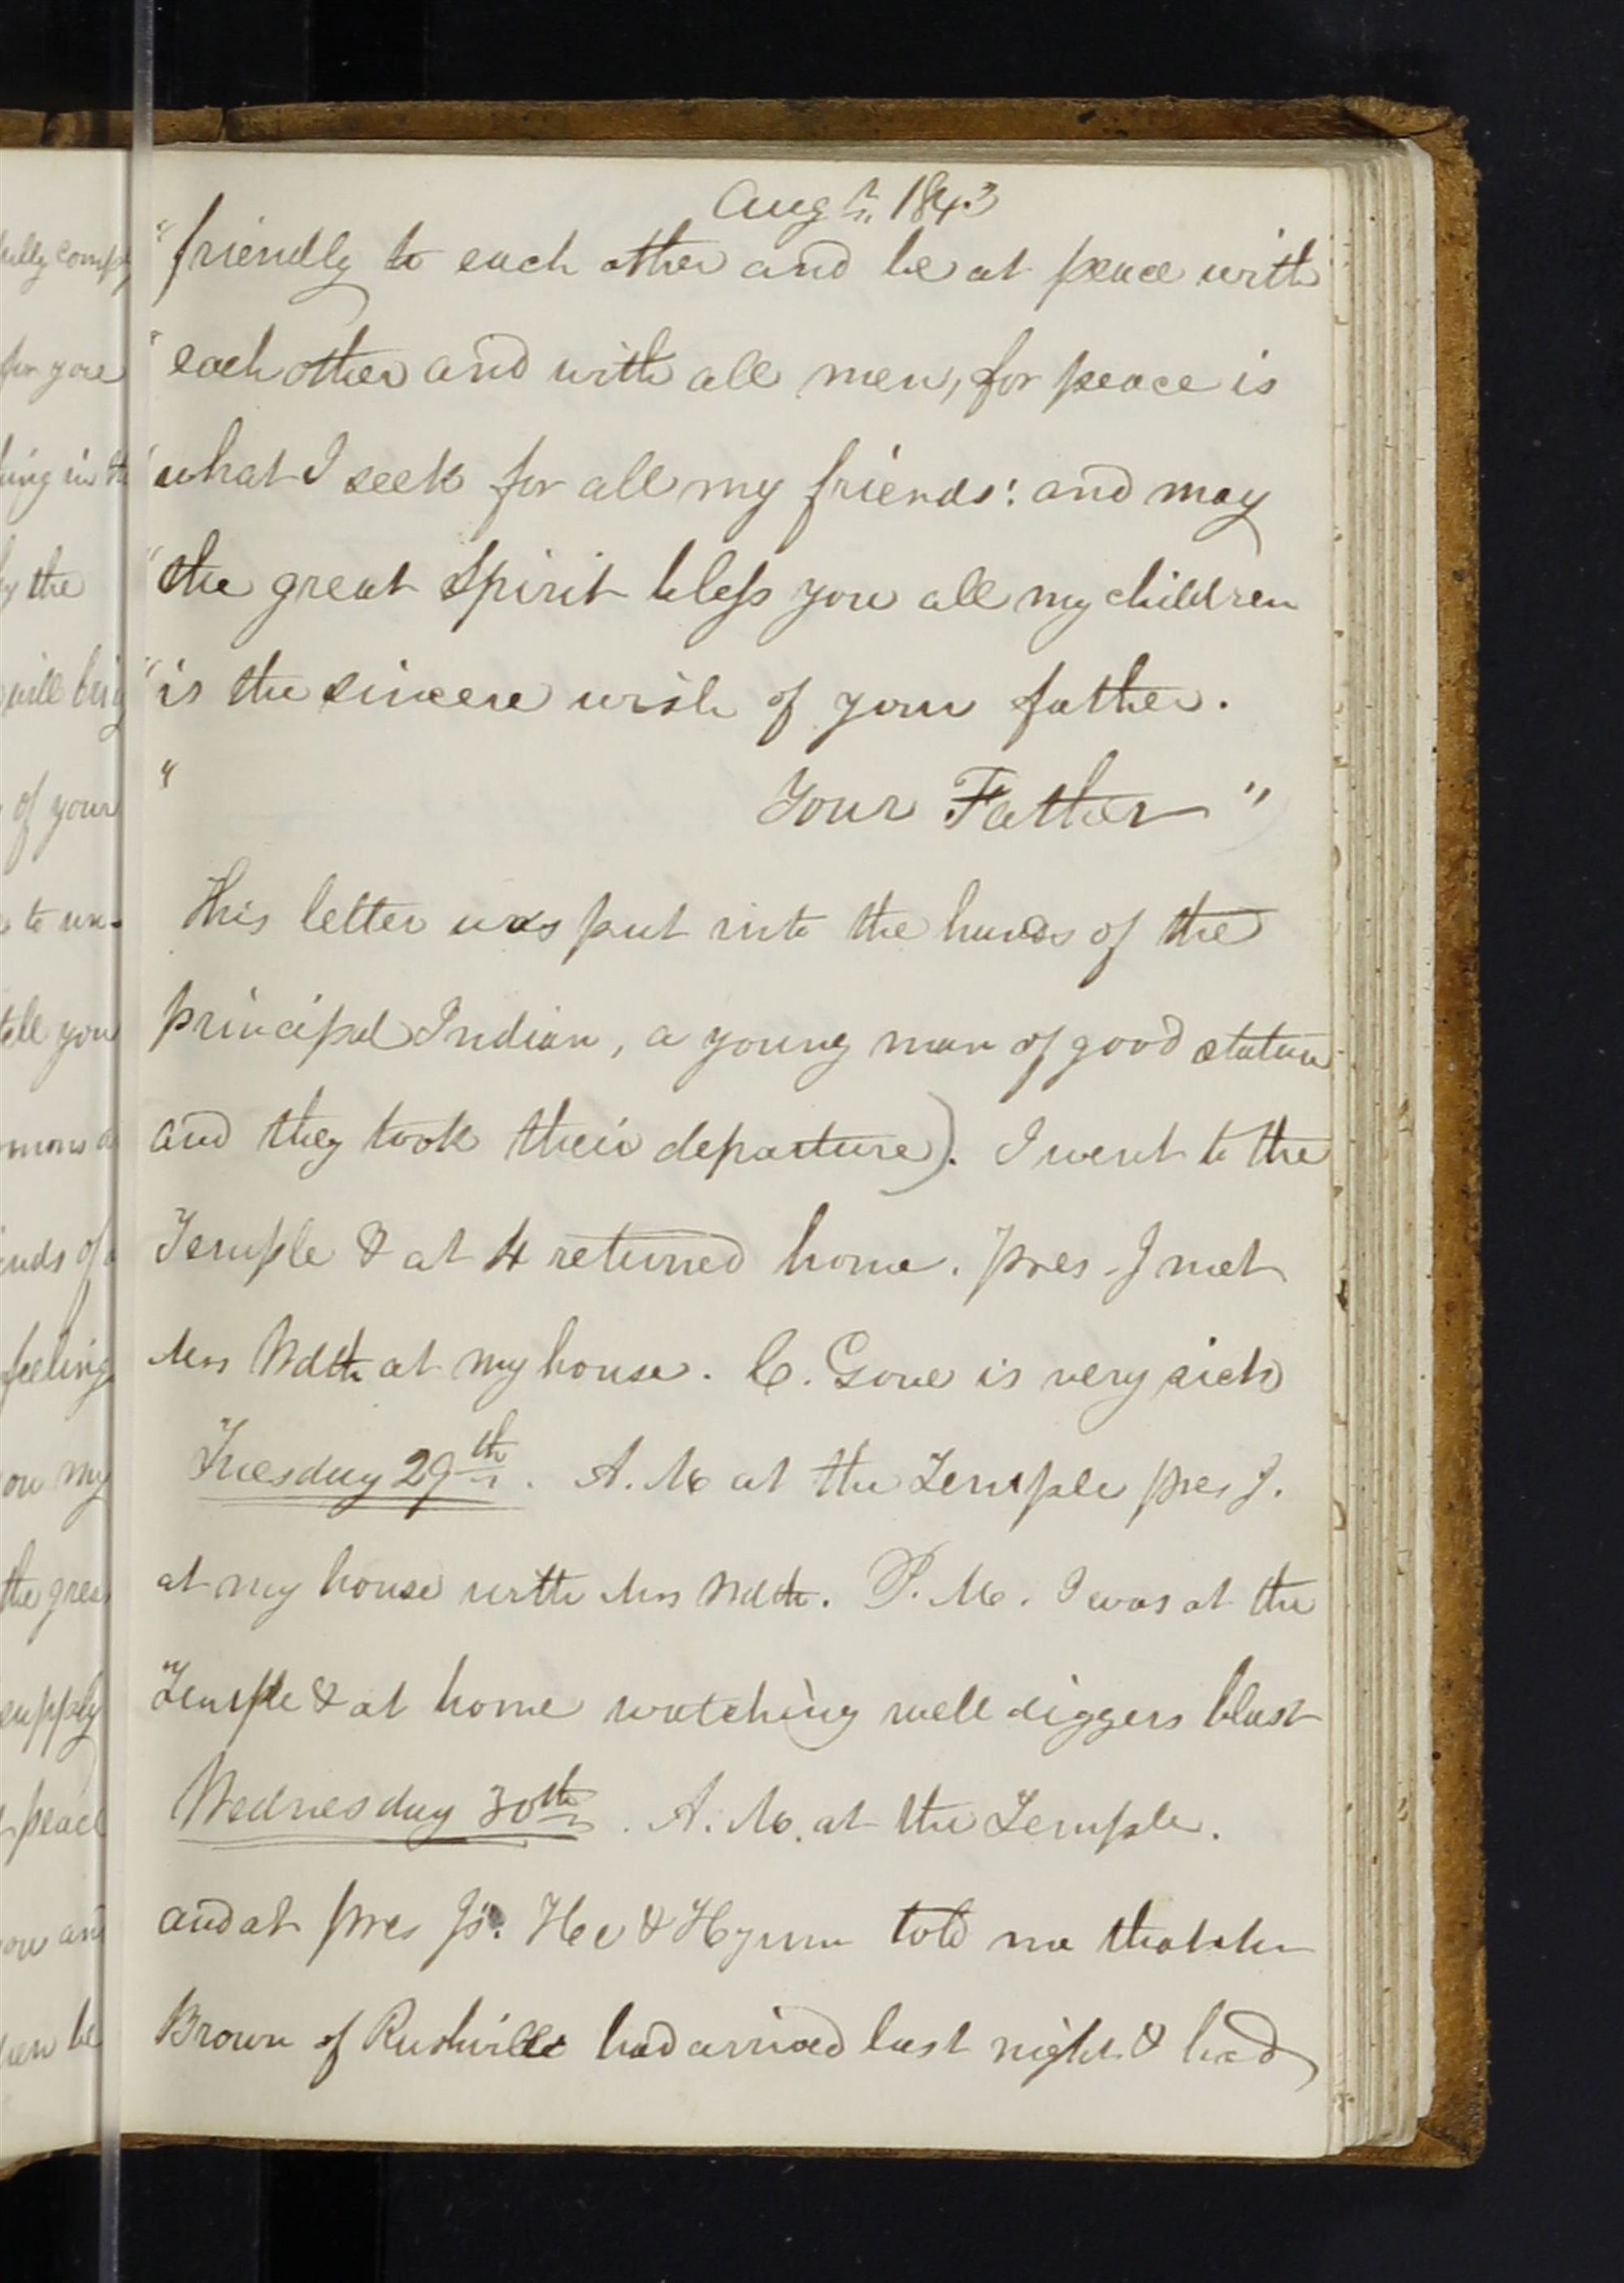 Augt. 1843
"friendly to each other and be at peace with
" each other and with all men, for peace is
"what I seek for all my friends: and may
"the great Spirit bless you all my children
"is the sincere wish of your father.
" Your Father "
This letter was put into the hands of the
principal Indian, a young man of good stature
and they took their departure). I went to the
Temple & at 4 returned home. pres J met
Mrs Wdth at my house. C. Gove is very sick
Tuesday 29th. A.M at the Temple pres J.
at my house with Mrs Wdth. P.M. I was at the
Temple & at home watching well diggers blast
Wednesday 30th. A.M. at the Temple.
and at pres Js. He & Hyrum told me that
Brown of Rushville had arrived last night & had
fully comply
for you
thing in the
by the
will bring
of your
to un-
tell you
feeling
on my
the great
supply
peace